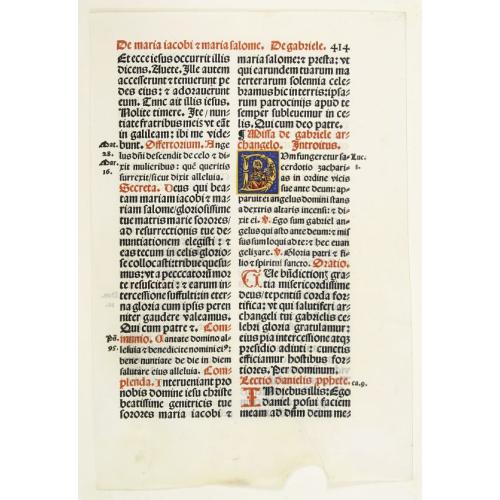 De maria iacobi ⁊ maria salome. De gabriele. 414
Et ecce iesus occurrit illis
dicens. Auete. Ille autem
accesserunt ⁊ tenuerunt pe
des eius: ⁊ adorauerunt
eum. Tunc ait illis iesus.
Nolite timere. Ite/ nun-
tiate fratribus meis vt eāt
in galileam: ibi me vide-
bunt. Offertorium. Ange
lus dñi descendit de celo ⁊ di-
xit mulieribus: quē queritis
surrexit/ sicut dixit alleluia.
Secreta. Deus qui bea-
tam mariam iacobi ⁊ ma-
riam salome/ gloriosissime
tue matris marie sorores/
ad resurrectionis tue de-
nuntiationem elegisti: ⁊
eas tecum in celis glorio-
se collocasti: tribue quesu-
mus: vt a peccatorū mor
te resuscitati: ⁊ earum in-
tercessione suffulti: in eter-
na gloria cum ipsis peren
niter gaudere valeamus.
Qui cum patre ⁊. Com-
munio. Cantate domino al-
leluia ⁊ benedicite nomini eiꝰ:
bene nuntiate de die in diem
salutare eius alleluia. Com-
plenda. Interueniant pro
nobis domine iesu christe
beatissime genitricis tue
sorores maria iacobi ⁊
Mat.
28.
Mar.
16.
95.
maria salome: ⁊ presta: vt
qui earundem tuarum ma
terterarum solennia cele-
bramus hic in terris: ipsa-
rum patrocinijs apud te
semper subleuemur in ce-
lis. Qui cum deo patre.
¶ Missa de gabriele ar-
changelo. Introitus.
DUm fungeretur sa-
cerdotio zachari-
as in ordine vicis
sue ante deum: ap-
paruit ei angelus domini stans
a dextris altaris incensi: ⁊ di-
xit ei. V. Ego sum gabriel an-
gelus qui asto ante deum: ⁊ mis
sus sum loqui ad te: ⁊ hec euan
gelizare. V. Gloria patri ⁊ fi-
lio ⁊ spiritui sancto. Oratio.
misericordissime
deus/ repentiū corda for-
tifica: vt qui salutiferi ar-
changeli tui gabrielis ce-
lebri gloria gratulamur:
eius pia intercessione atqꝫ
presidio adiuti: cunctis
efficiamur hostibus for-
tiores. Per dominum.
Lectio danielis pphete.
IN diebus illis: Ego
daniel posui faciem
meam ad dñm deum me-
Luc.
1.
ca. 9.